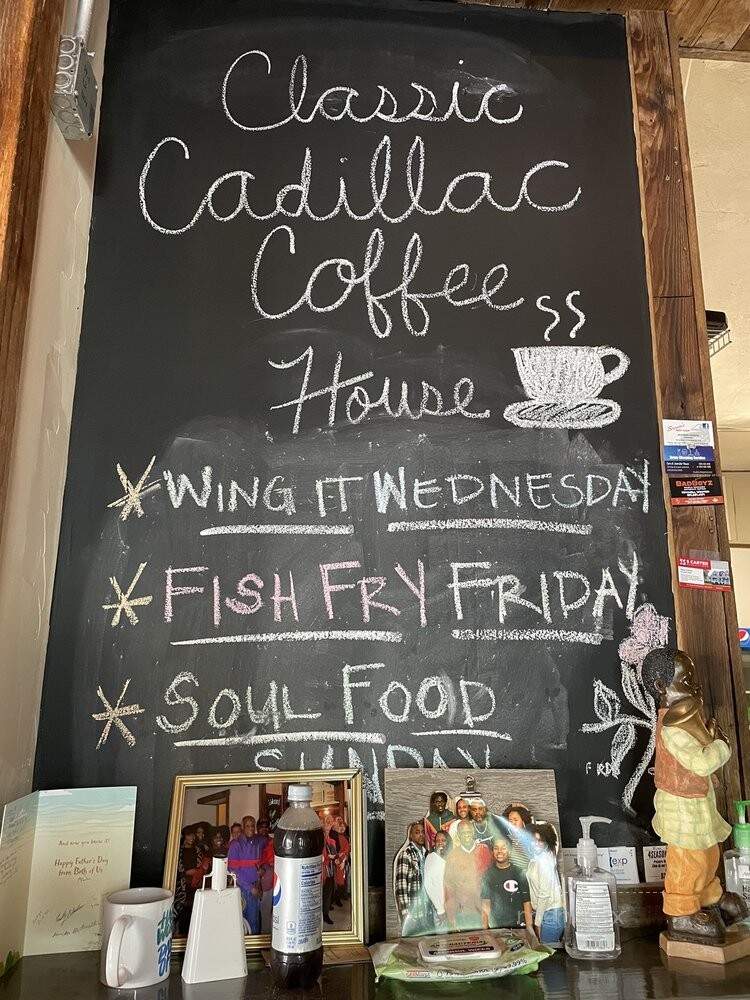 Classic
Cadillac
Coffee
House
* WING IT WEDNESDAY
* FISH FRY FRIDAY
* SOUL FOOD
SUNDAY
BADBOYZ
And now you know it!
Happy Father's Day
from Both of Us